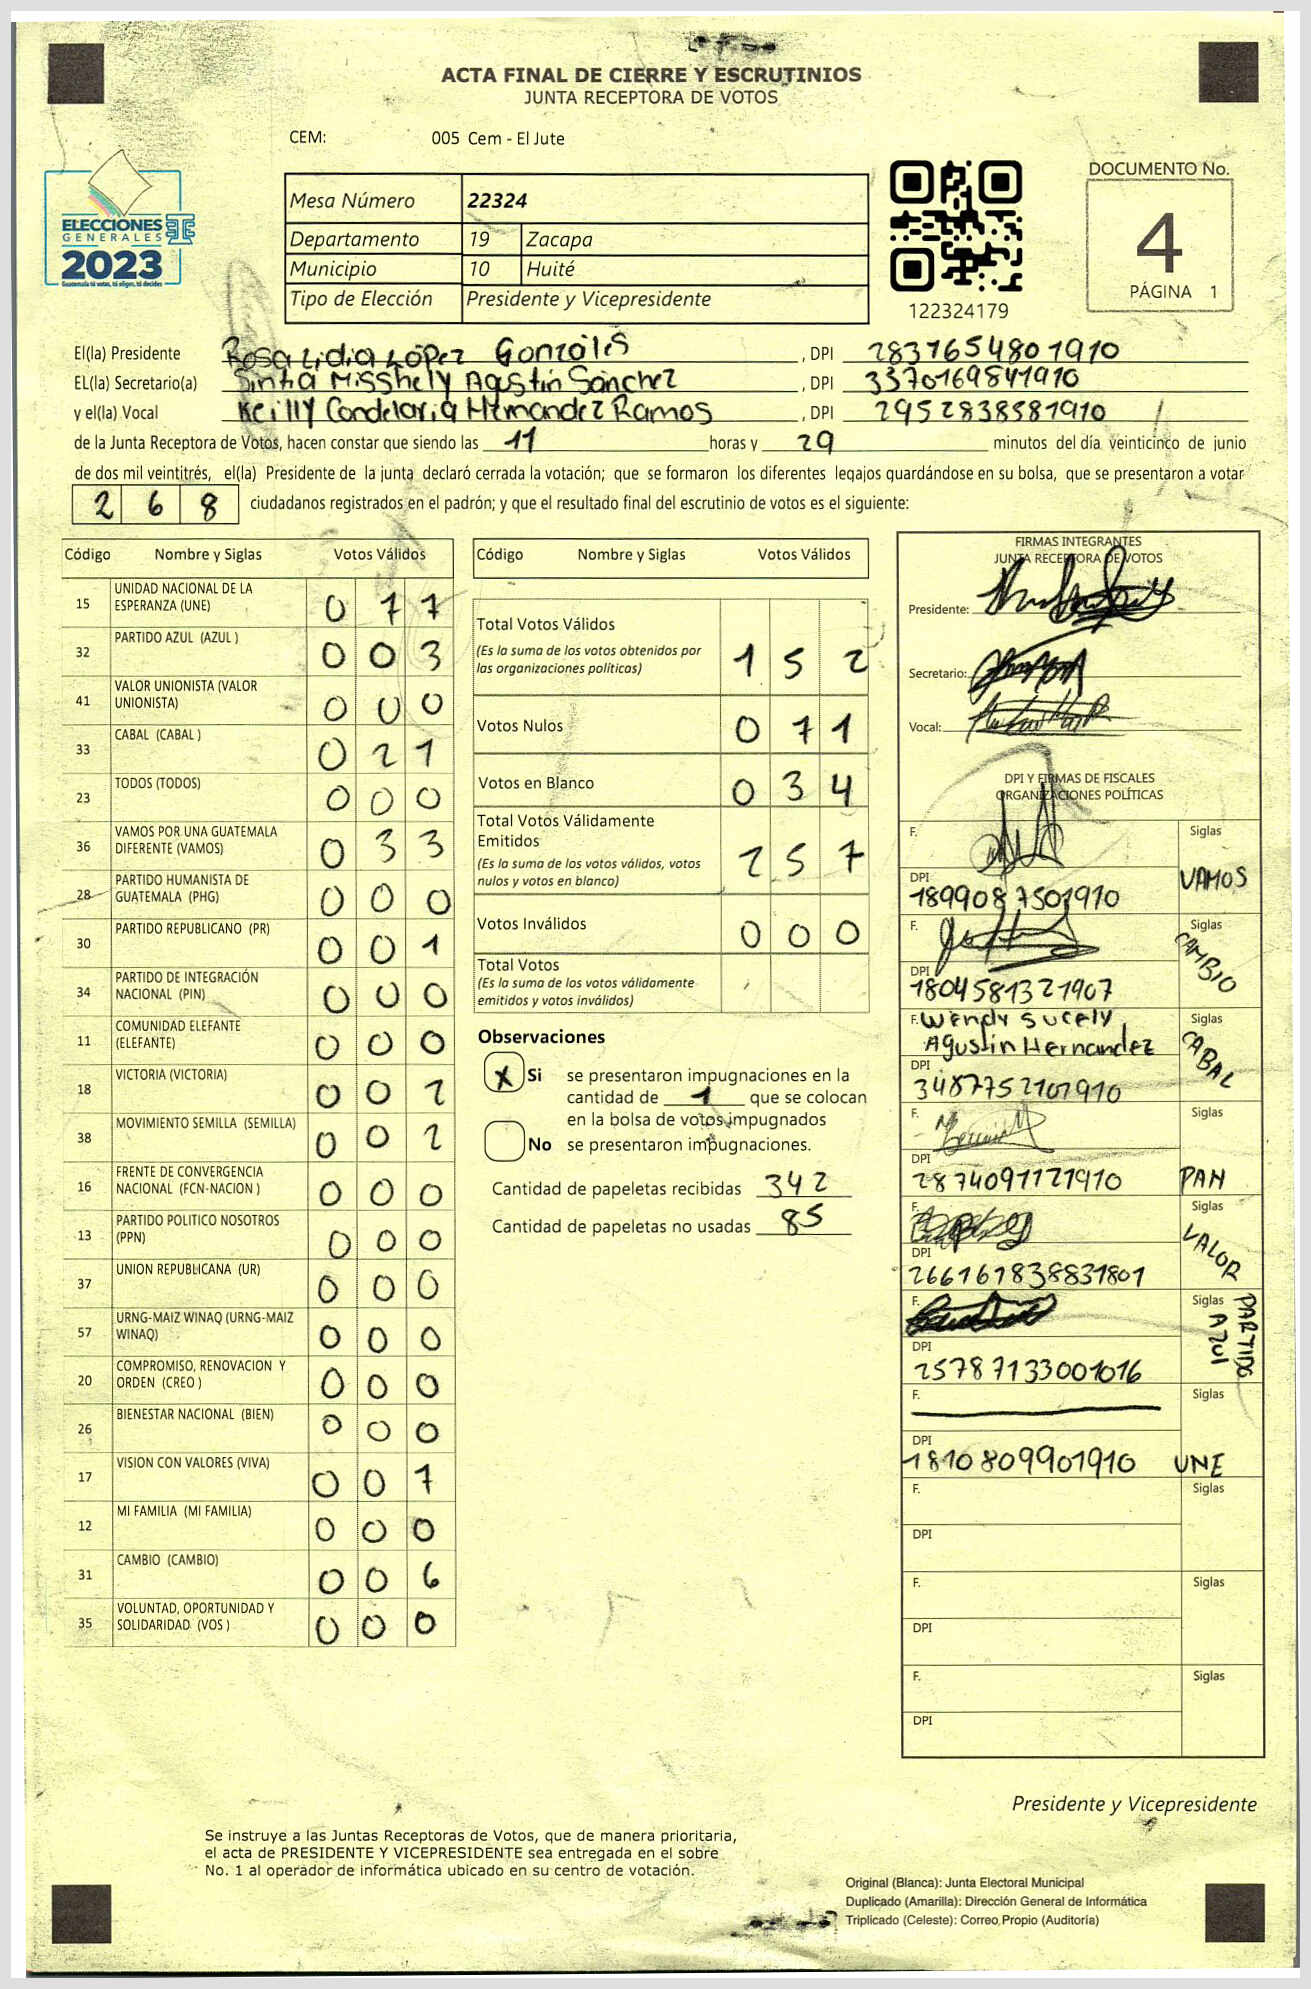 ACTA FINAL DE CIERRE Y ESCRUTINIOS
JUNTA RECEPTORA DE VOTOS
CEM: 005 Cem - El Jute
ELECCIONES
GENERALES
2023
Guatemala tú votas, tú eliges, tú decides
Mesa Número 22324
Departamento 19 Zacapa
Municipio 10 Huité
Tipo de Elección Presidente y Vicepresidente
122324179
DOCUMENTO No.
4
PÁGINA 1
El(la) Presidente Rosa Lidia López Gonzáles , DPI 2837654801910
EL(la) Secretario(a) Sintia Misshely Agustín Sánchez , DPI 3370169841910
y el(la) Vocal Keilly Candelaria Hernandez Ramos , DPI 2952838581910
de la Junta Receptora de Votos, hacen constar que siendo las 11 horas y 29 minutos del día veinticinco de junio
de dos mil veintitrés, el(la) Presidente de la junta declaró cerrada la votación; que se formaron los diferentes legajos guardándose en su bolsa, que se presentaron a votar
268 ciudadanos registrados en el padrón; y que el resultado final del escrutinio de votos es el siguiente:
Código Nombre y Siglas Votos Válidos
15 UNIDAD NACIONAL DE LA ESPERANZA (UNE) 0 7 7
32 PARTIDO AZUL (AZUL ) 0 0 3
41 VALOR UNIONISTA (VALOR UNIONISTA) 0 0 0
33 CABAL (CABAL ) 0 2 1
23 TODOS (TODOS) 0 0 0
36 VAMOS POR UNA GUATEMALA DIFERENTE (VAMOS) 0 3 3
28 PARTIDO HUMANISTA DE GUATEMALA (PHG) 0 0 0
30 PARTIDO REPUBLICANO (PR) 0 0 1
34 PARTIDO DE INTEGRACIÓN NACIONAL (PIN) 0 0 0
11 COMUNIDAD ELEFANTE (ELEFANTE) 0 0 0
18 VICTORIA (VICTORIA) 0 0 2
38 MOVIMIENTO SEMILLA (SEMILLA) 0 0 2
16 FRENTE DE CONVERGENCIA NACIONAL (FCN-NACION ) 0 0 0
13 PARTIDO POLITICO NOSOTROS (PPN) 0 0 0
37 UNION REPUBLICANA (UR) 0 0 0
57 URNG-MAIZ WINAQ (URNG-MAIZ WINAQ) 0 0 0
20 COMPROMISO, RENOVACION Y ORDEN (CREO ) 0 0 0
26 BIENESTAR NACIONAL (BIEN) 0 0 0
17 VISION CON VALORES (VIVA) 0 0 7
12 MI FAMILIA (MI FAMILIA) 0 0 0
31 CAMBIO (CAMBIO) 0 0 6
35 VOLUNTAD, OPORTUNIDAD Y SOLIDARIDAD (VOS ) 0 0 0
Código Nombre y Siglas Votos Válidos
Total Votos Válidos 1 5 2
(Es la suma de los votos obtenidos por
las organizaciones políticas)
Votos Nulos 0 7 1
Votos en Blanco 0 3 4
Total Votos Válidamente
Emitidos 2 5 7
(Es la suma de los votos válidos, votos
nulos y votos en blanco)
Votos Inválidos 0 0 0
Total Votos
(Es la suma de los votos válidamente
emitidos y votos inválidos)
Observaciones
X Si se presentaron impugnaciones en la
cantidad de 1 que se colocan
en la bolsa de votos impugnados
No se presentaron impugnaciones.
Cantidad de papeletas recibidas 342
Cantidad de papeletas no usadas 85
FIRMAS INTEGRANTES
JUNTA RECEPTORA DE VOTOS
Presidente:
Secretario:
Vocal:
DPI Y FIRMAS DE FISCALES
ORGANIZACIONES POLÍTICAS
F. Siglas
DPI 1899087501910 VAMOS
F. Siglas
DPI 1804581321907 CAMBIO
F. Wendy Sucely Siglas
Agustin Hernandez
DPI 3487752101910 CABAL
F. Siglas
DPI 2874091121910 PAN
F. Siglas
DPI 266161838831801 VALOR
F. Siglas
DPI 25787133001016 PARTIDO AZUL
F. Siglas
DPI 1810809901910 UNE
F. Siglas
DPI
F. Siglas
DPI
F. Siglas
DPI
Presidente y Vicepresidente
Se instruye a las Juntas Receptoras de Votos, que de manera prioritaria,
el acta de PRESIDENTE Y VICEPRESIDENTE sea entregada en el sobre
No. 1 al operador de informática ubicado en su centro de votación.
Original (Blanca): Junta Electoral Municipal
Duplicado (Amarilla): Dirección General de Informática
Triplicado (Celeste): Correo Propio (Auditoría)